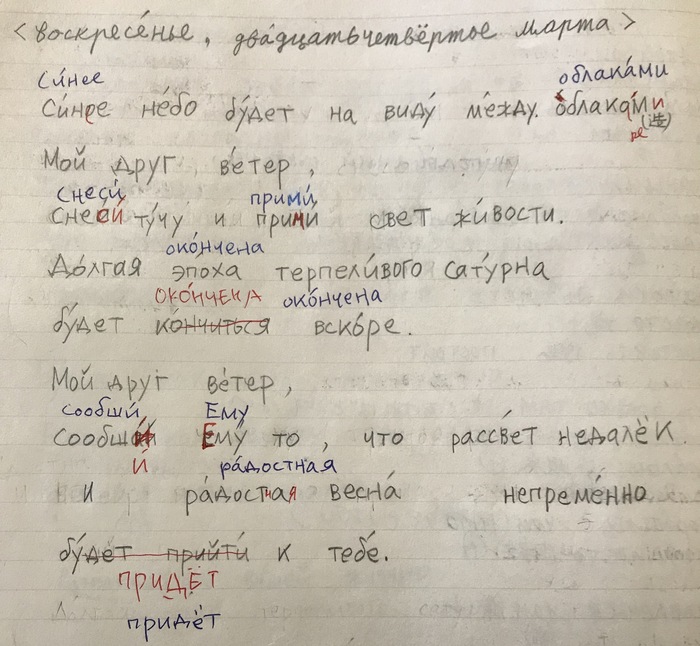 <воскресе́нье, два́дцатьчетвёртое марта>
Си́нее облака́ми
Си́нее не́бо бу́дет на виду́ ме́жду. облака́ми
ре (造)
Мой друг ве́тер,
снеси́ прими́
снеси́ ту́чу и прими свет жи́вости.
око́нчена
До́лгая эпоха терпели́вого сату́рна
ОКО́НЧЕНА око́нчена
бу́дет ко́нчиться вско́ре.
Мой друг ве́тер,
сообщи́ Ему
сообщ Ему́ то, что рассве́т недалёк.
и́ ра́достная
и ра́достная весна́ непреме́нно
бу́дет прийти́ к тебе́.
ПРИДЁТ
придёт